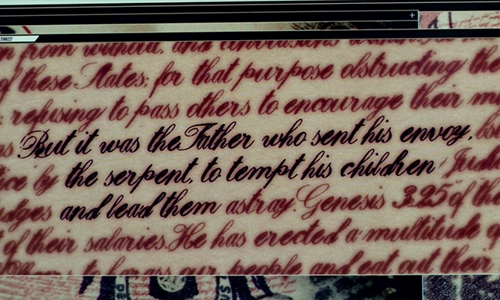 from without, and convulsions
of these States; for that purpose obstructing the
; refusing to pass others to encourage their
But it was the Father who sent his envoy,
ice by the serpent, to tempt his children Judi
udges and lead them astray. Genesis 3:25 of the
of their salaries. He has erected a multitude o
to harass our people and eat out their